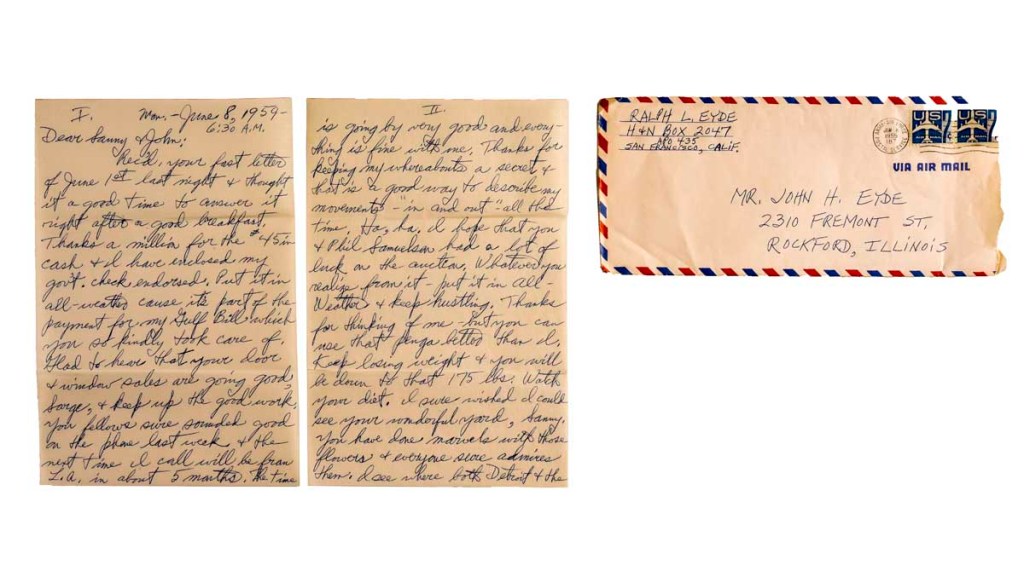 I.
Mon. - June 8, 1959 -
6:30 A.M.
Dear Sanny & John:
Rec'd. your fast letter
of June 1st last night & thought
it a good time to answer it
right after a good breakfast.
Thanks a million for the $45 in
cash & I have enclosed my
gov't. check endorsed. Put it in
all-weather cause its part of the
payment for my Gulf Bill which
you so kindly took care of.
Glad to hear that your door
& window sales are going good,
Sarge, & keep up the good work.
You fellows sure sounded good
on the phone last week & the
next time I call will be from
L.A. in about 5 months. The time
II.
is going by very good and every-
thing is fine with me. Thanks for
keeping my whereabouts a secret &
that is a good way to describe my
movements - "in and out" all the
time, Ha, ha. I hope that you
& Phil Samuelson had a lot of
luck on the auction. Whatever you
realize from it - put it in All-
Weather & keep hustling. Thanks
for thinking of me - but you can
use that better than I.
Keep losing weight & you will
be down to that 175 lbs. Watch
your diet. I sure wished I could
see your wonderful yard, Sanny.
You have done marvels with those
flowers & everyone sure admires
them. I see where both Detroit & the
RALPH L. EYDE
H&N BOX 2047
APO 435
SAN FRANCISCO, CALIF.
US 7¢
US 7¢
VIA AIR MAIL
MR. JOHN H. EYDE
2310 FREMONT ST.
ROCKFORD, ILLINOIS